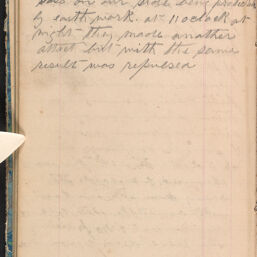 loss on our side, being protected
by earth work. at 11 oclock at
night they made another
attact but with the same
result was repulsed